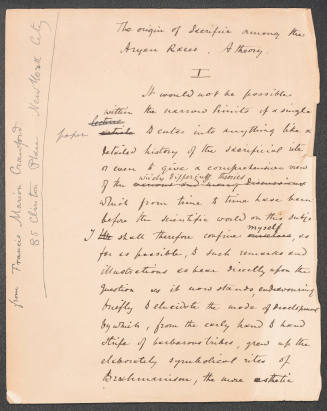 The origin of Sacrifice among the
Aryan Races. A theory.
I
It would not be possible
within
the narrow limits of a single
lecture
paper article to enter into anything like a
detailed history of the sacrificial rite
or even to give a comprehensive view
widely different theories
of the various and many discussions
which from time to time have been
before the scientific world on this subject
myself
I We shall therefore confine ourselves, as
far as possible, to such remarks and
illustrations as bear directly upon the
question as it now stands, endeavouring
briefly to elucidate the mode of development
by which, from the early hand to hand
strife of barbarous tribes, grew up the
elaborately symbolical rites of
Brahmanism, the more esthetic
from Francis Marion Crawford
85 Clinton Place New York City